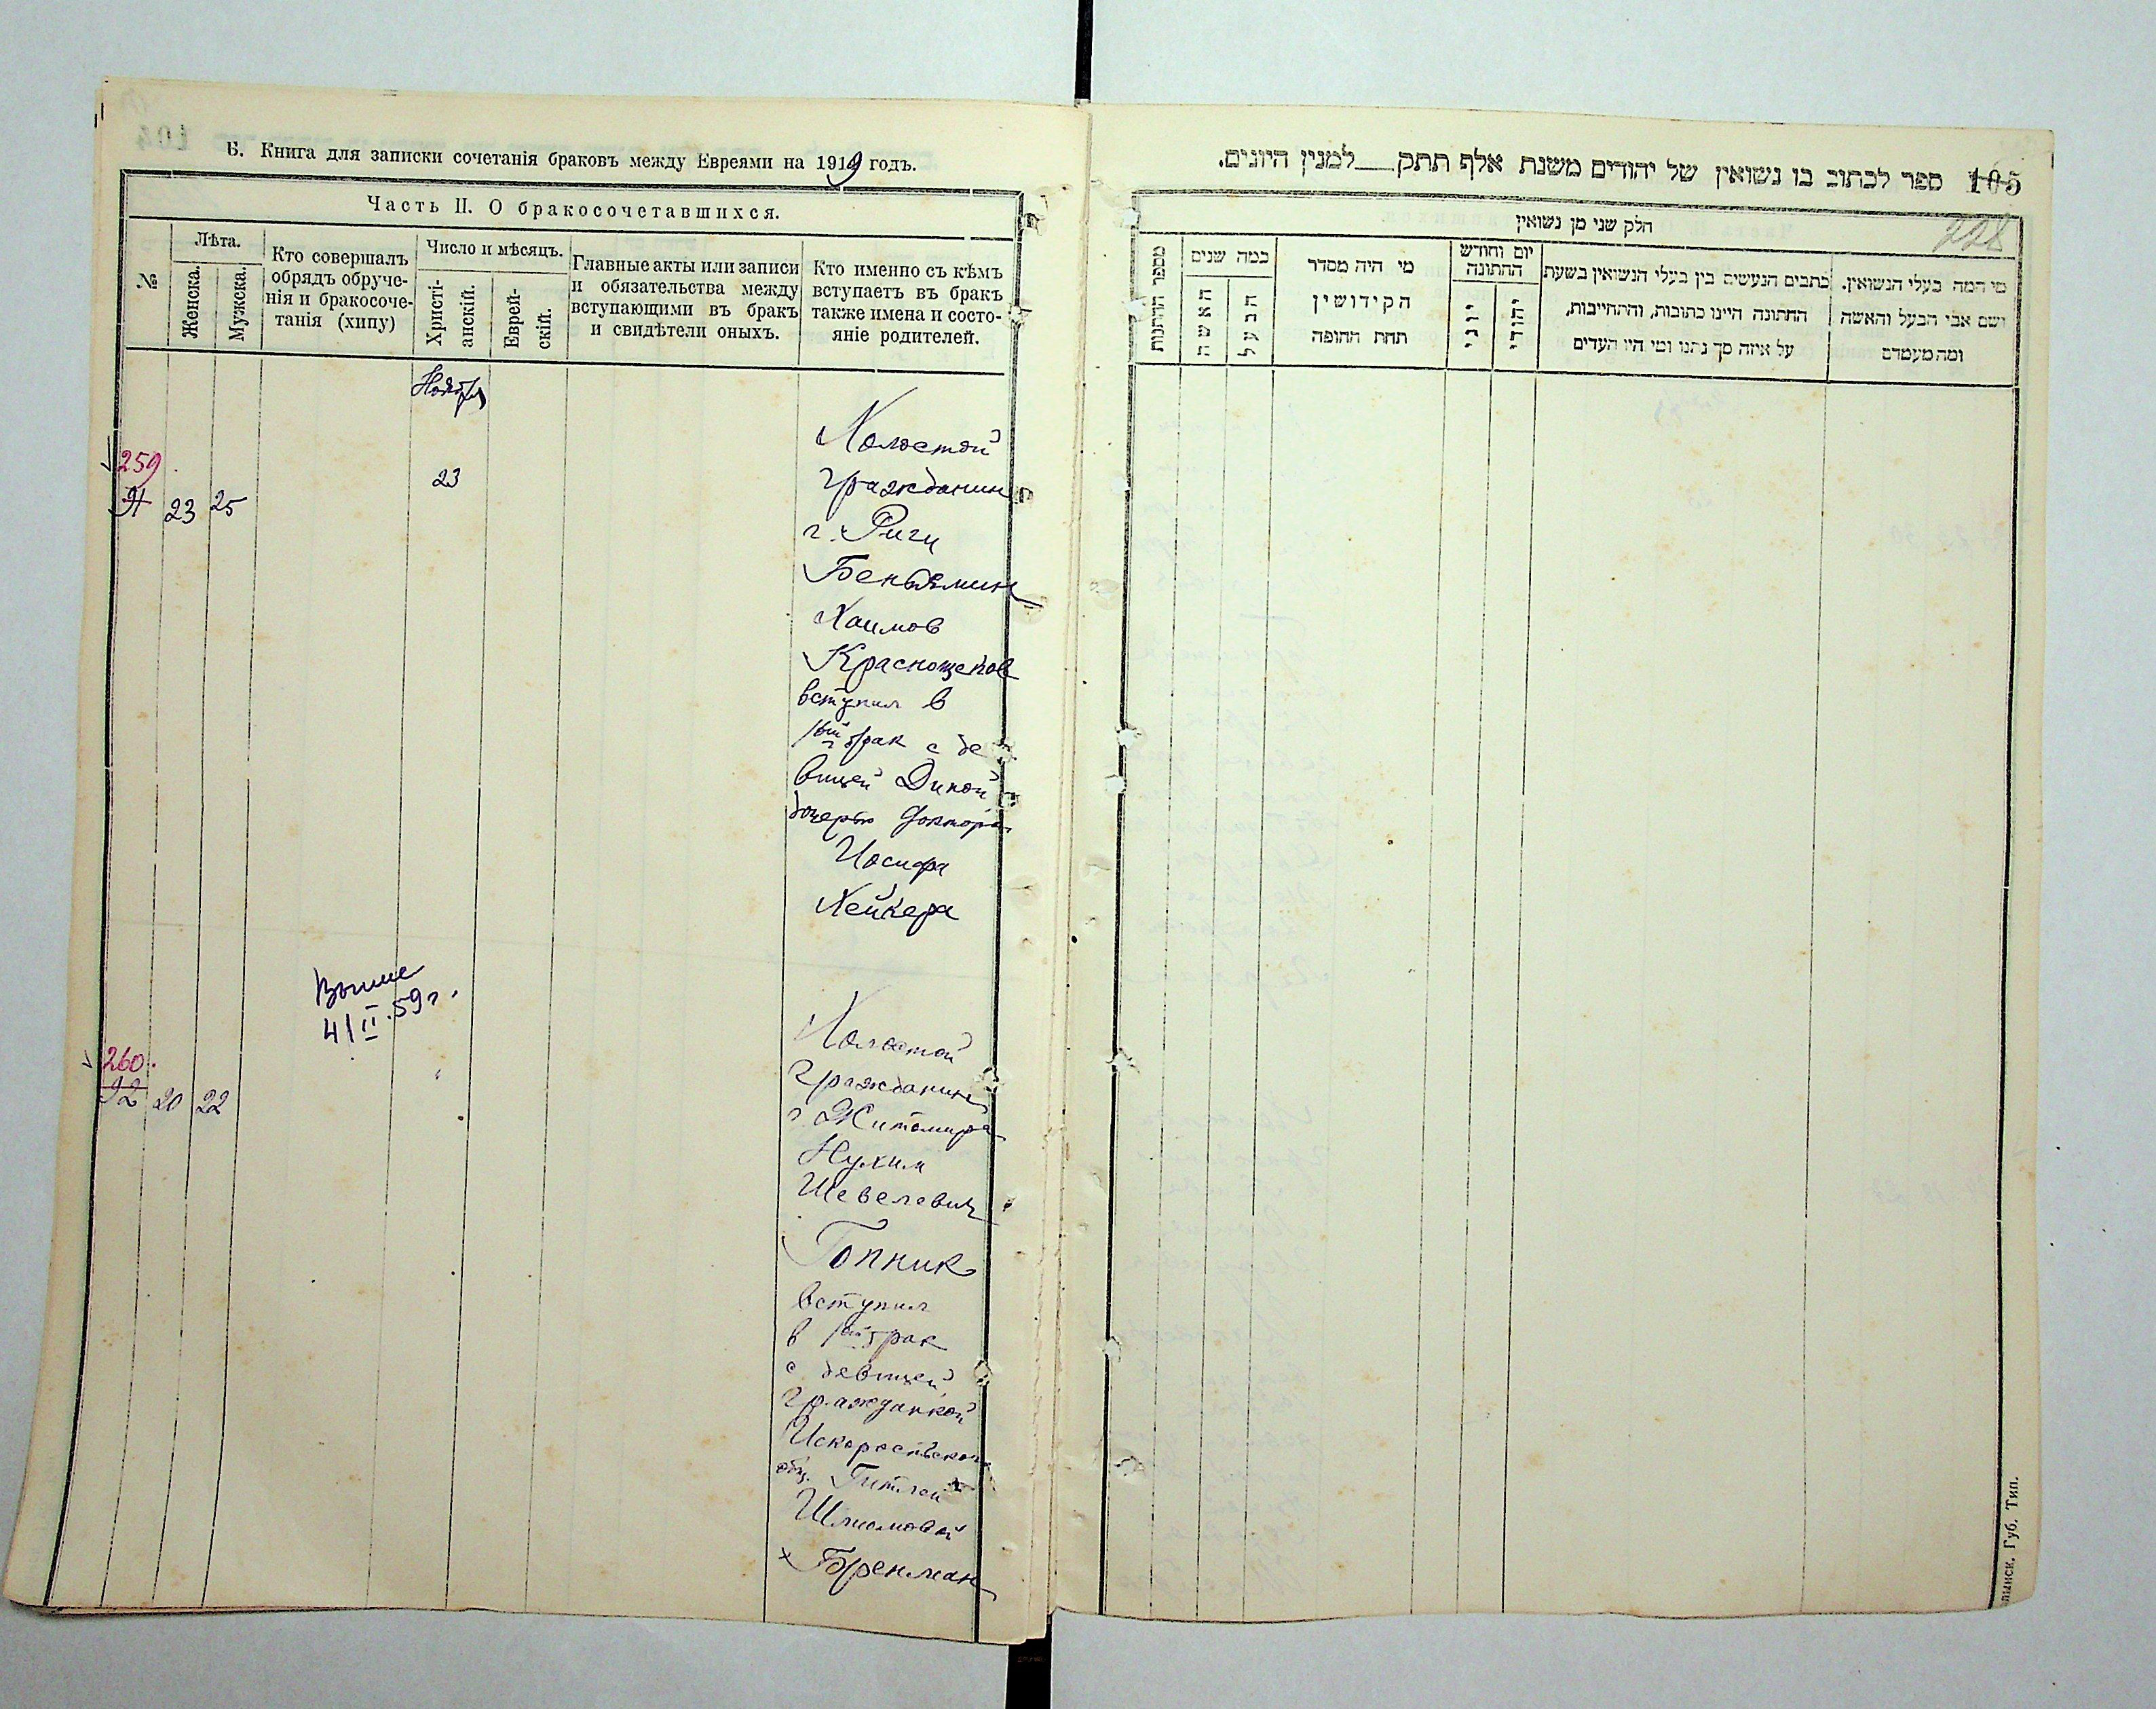 Б. Книга для записки сочетанія браковъ между Евреями на 1919 годъ.
Часть II. О бракосочетавшихся.
№
Лѣта.
Женска.
Мужска.
Кто совершалъ
обрядъ обруче-
нія и бракосоче-
танія (хипу)
Число и мѣсяцъ.
Христі-
анскій.
Еврей-
скій.
Главные акты или записи
и обязательства между
вступающими въ бракъ
и свидѣтели оныхъ.
Кто именно съ кѣмъ
вступаетъ въ бракъ
также имена и состо-
яніе родителей.
Ноября
259
91
23
25
23
Холостой
гражданин
г. Риги
Беньямин
Хаимов
Краснощеков
вступил в
1ый брак с де
вицей Диной
дочерью доктора
Иосифа
Хейкера
4/II.59г.
260.
92
20
22
Холостой
гражданин
г. Житомира
Нухим
Шевелевич
Топник
вступил
в 1ый брак
с девицей
гражданкой
Искоростьской
общ. Гитлей
Шлиомовой
Бренман
105 ספר לכתוב בו נשואין של יהודים משנת אלף תתק___למנין היונים.
228
חלק שני מן נשואין
מספר החתונות
כמה שנים
האשה
הבעל
מי היה מסדר
הקידושין
תחת החופה
יום וחודש
החתונה
יוני
יהודי
כתבים הנעשים בין בעלי הנשואין בשעת
החתונה היינו כתובות, והתחייבות,
על איזה סך נתנו ומי היו העדים
מי המה בעלי הנשואין.
ושם אבי הבעל והאשה
ומה מעמדם
лынск. Губ. Тип.